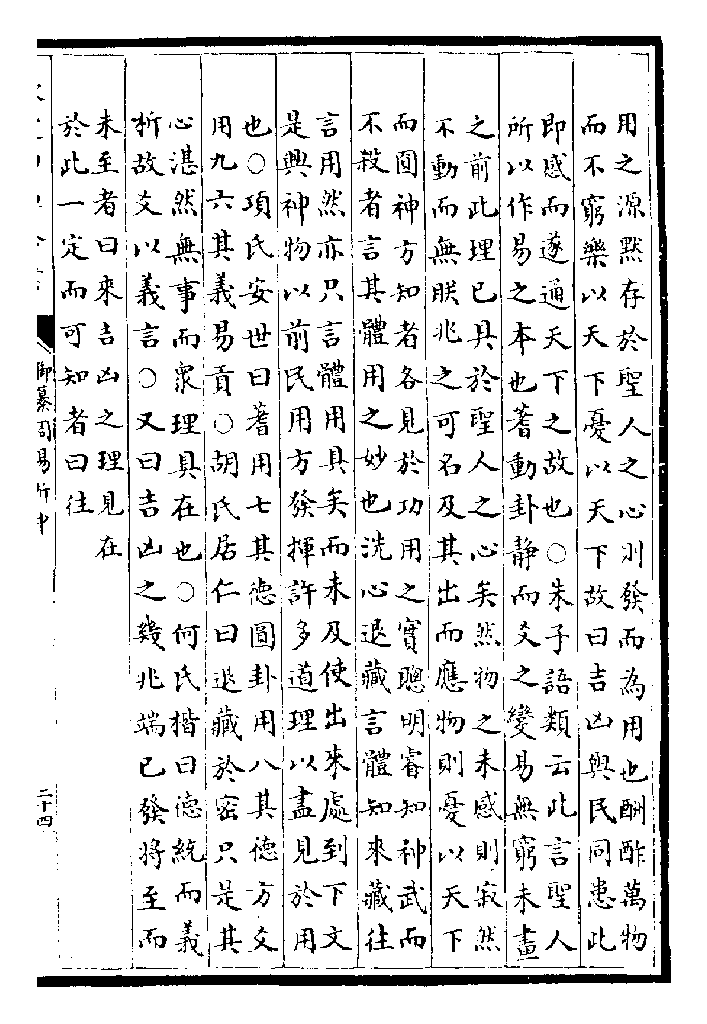 用之源黙存於聖人之心則發而為用也酬酢萬物
而不窮樂以天下憂以天下故曰吉凶與民同患此
即感而遂通天下之故也○朱子語類云此言聖人
所以作易之本也蓍動卦静而爻之變易無窮未畫
之前此理已具於聖人之心矣然物之未感則寂然
不動而無朕兆之可名及其出而應物則憂以天下
而圓神方知者各見於功用之實聰明睿知神武而
不殺者言其體用之妙也洗心退藏言體知來藏往
言用然亦只言體用具矣而未及使出來處到下文
是興神物以前民用方發揮許多道理以盡見於用
也○項氏安世曰蓍用七其德圓卦用八其德方爻
用九六其義易貢○胡氏居仁曰退藏於密只是其
心湛然無事而衆理具在也○何氏楷曰德統而義
析故爻以義言○又曰吉凶之幾兆端已發將至而
未至者曰來吉凶之理見在
於此一定而可知者曰往
御纂周易折中
二十四